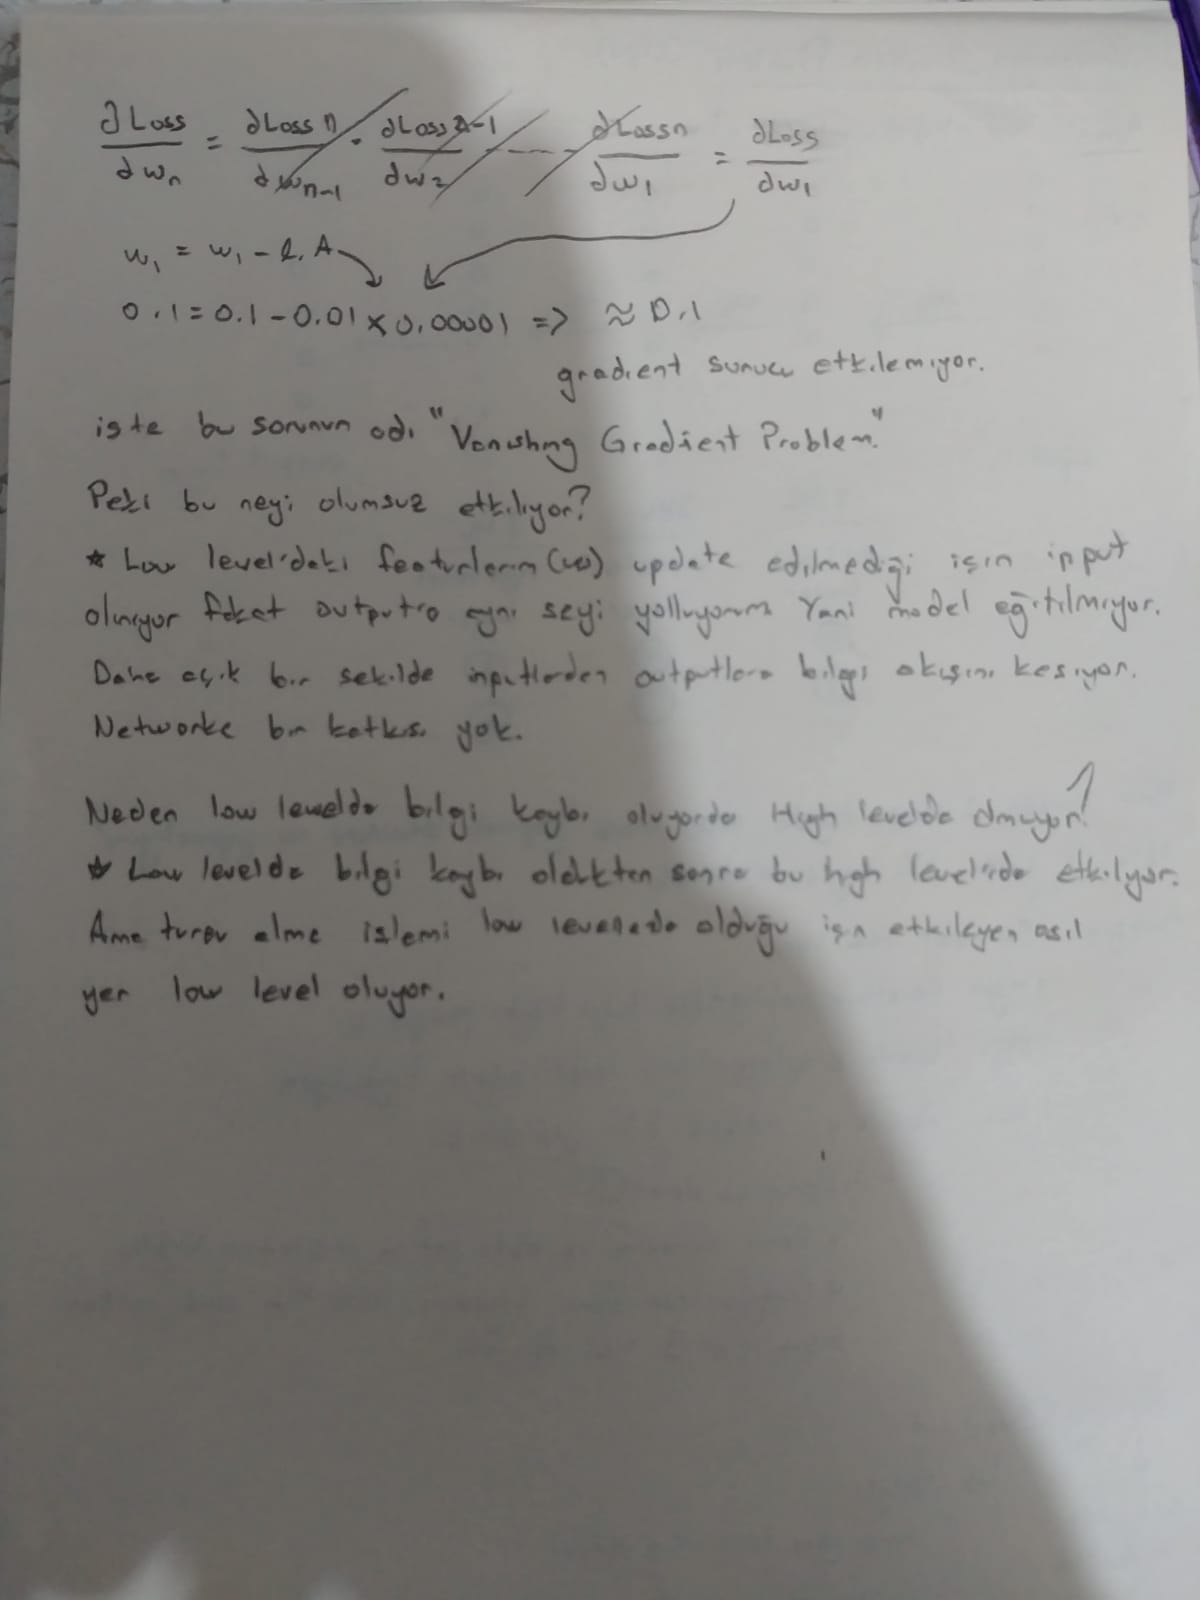 ∂Loss/∂wn = ∂Loss n/∂wn-1 · ∂Loss n-1/∂w2 ---- ∂Loss n/∂w1 = ∂Loss/∂w1
w1 = w1 - l. A
0.1 = 0.1 - 0.01 x 0.00001 => ≈ 0.1
gradient sonucu etkilemiyor.
işte bu sorunun adı "Vanishing Gradient Problem."
Peki bu neyi olumsuz etkiliyor?
* Low level'daki featurlerin (w) update edilmediği için input
alınıyor fakat outputra aynı seyi yolluyorum Yani model eğitilmiyor.
Daha açık bir sekilde inputlardan outputlara bilgi akışını kesiyor.
Networke bir katkısı yok.
Neden low levelda bilgi kaybı oluyorda High levelda olmuyor?
* Low levelda bilgi kaybı oldukten sonra bu high level'ıda etkiliyor.
Ama turev alma işlemi low olduğu için etkileyen asıl
yer low level oluyor.